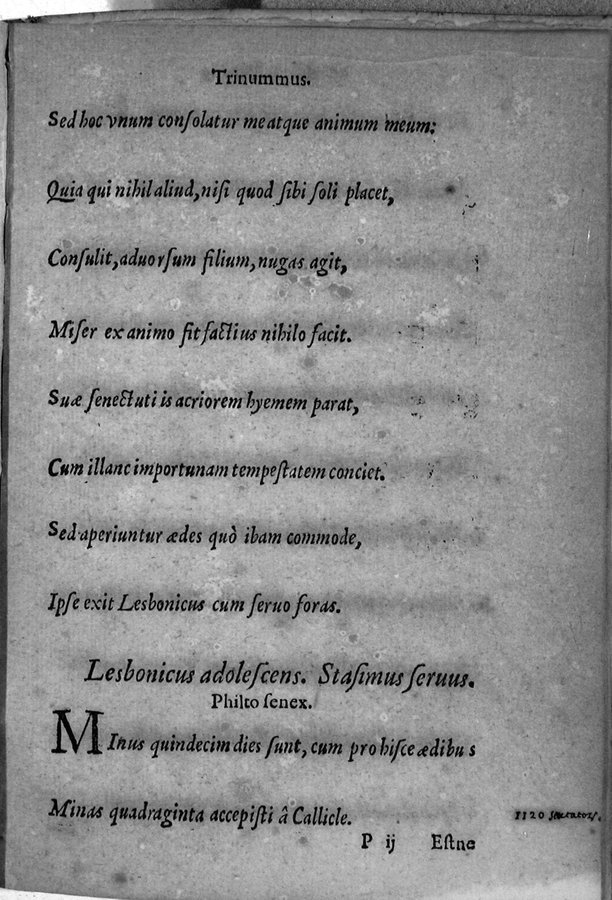 Trinummus.
Sed hoc vnum conſolatur me atque animum meum:
Quia qui nihil aliud, niſi quod ſibi ſoli placet,
Conſulit, aduorſum filium, nugas agit,
Miſer ex animo fit factius nihilo facit.
Suæ ſenectuti is acriorem hyemem parat,
Cum illanc importunam tempeſtatem conciet.
Sed aperiuntur ædes quò ibam commode,
Ipſe exit Lesbonicus cum ſeruo foras.
Lesbonicus adoleſcens. Staſimus ſeruus.
Philto ſenex.
MInus quindecim dies ſunt, cum pro hiſce ædibus
Minas quadraginta accepiſti â Callicle.
1120
P ij Eſtne